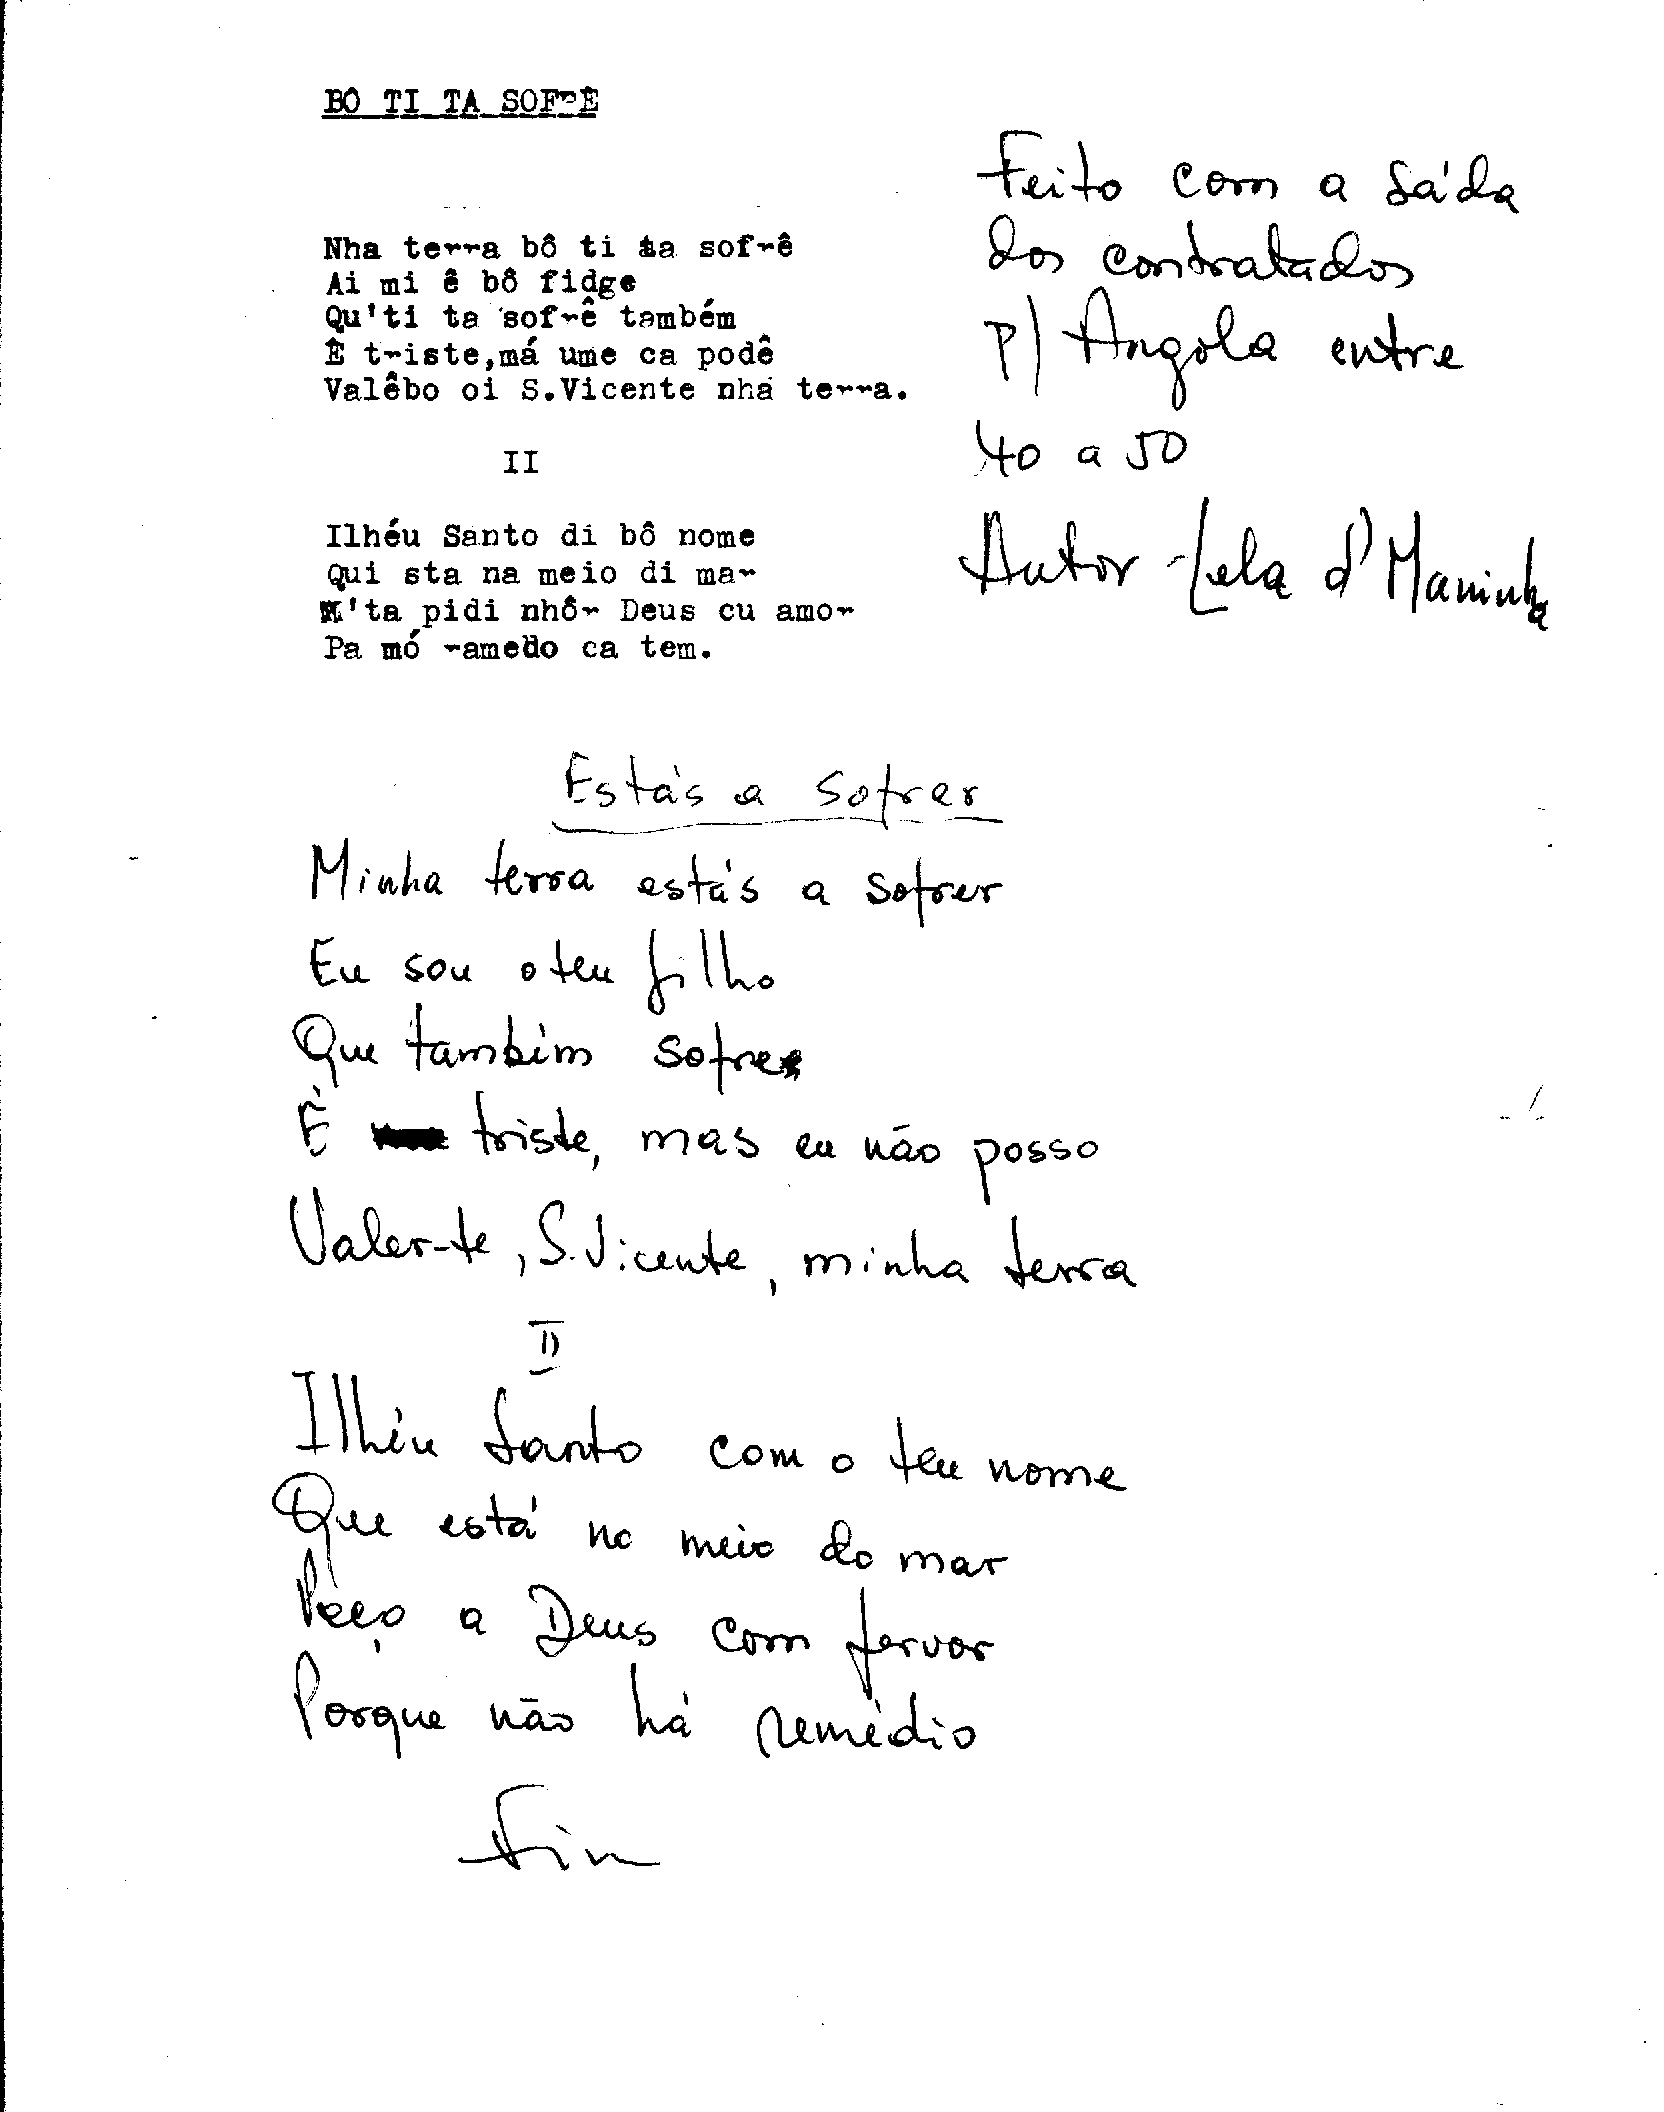 BÔ TI TA SOFRÊ
Nha terra bô ti ta sofrê
Ai mi ê bô fidge
Qu'ti ta sofrê também
Ê triste,má ume ca podê
Valêbo oi S.Vicente nha terra.
II
Ilhéu Santo di bô nome
Qui sta na meio di mar
M'ta pidi nhôr Deus cu amor
Pa mó ramedo ca tem.
Feito com a saída
dos contratados
p/ Angola entre
40 a 50
Autor - Lela d'Maninha
Estás a sofrer
Minha terra estás a sofrer
Eu sou o teu filho
Que também sofre
É triste, mas eu não posso
Valer-te, S. Vicente, minha terra
II
Ilhéu Santo com o teu nome
Que está no meio do mar
Peço a Deus com fervor
Porque não há remédio
Fim